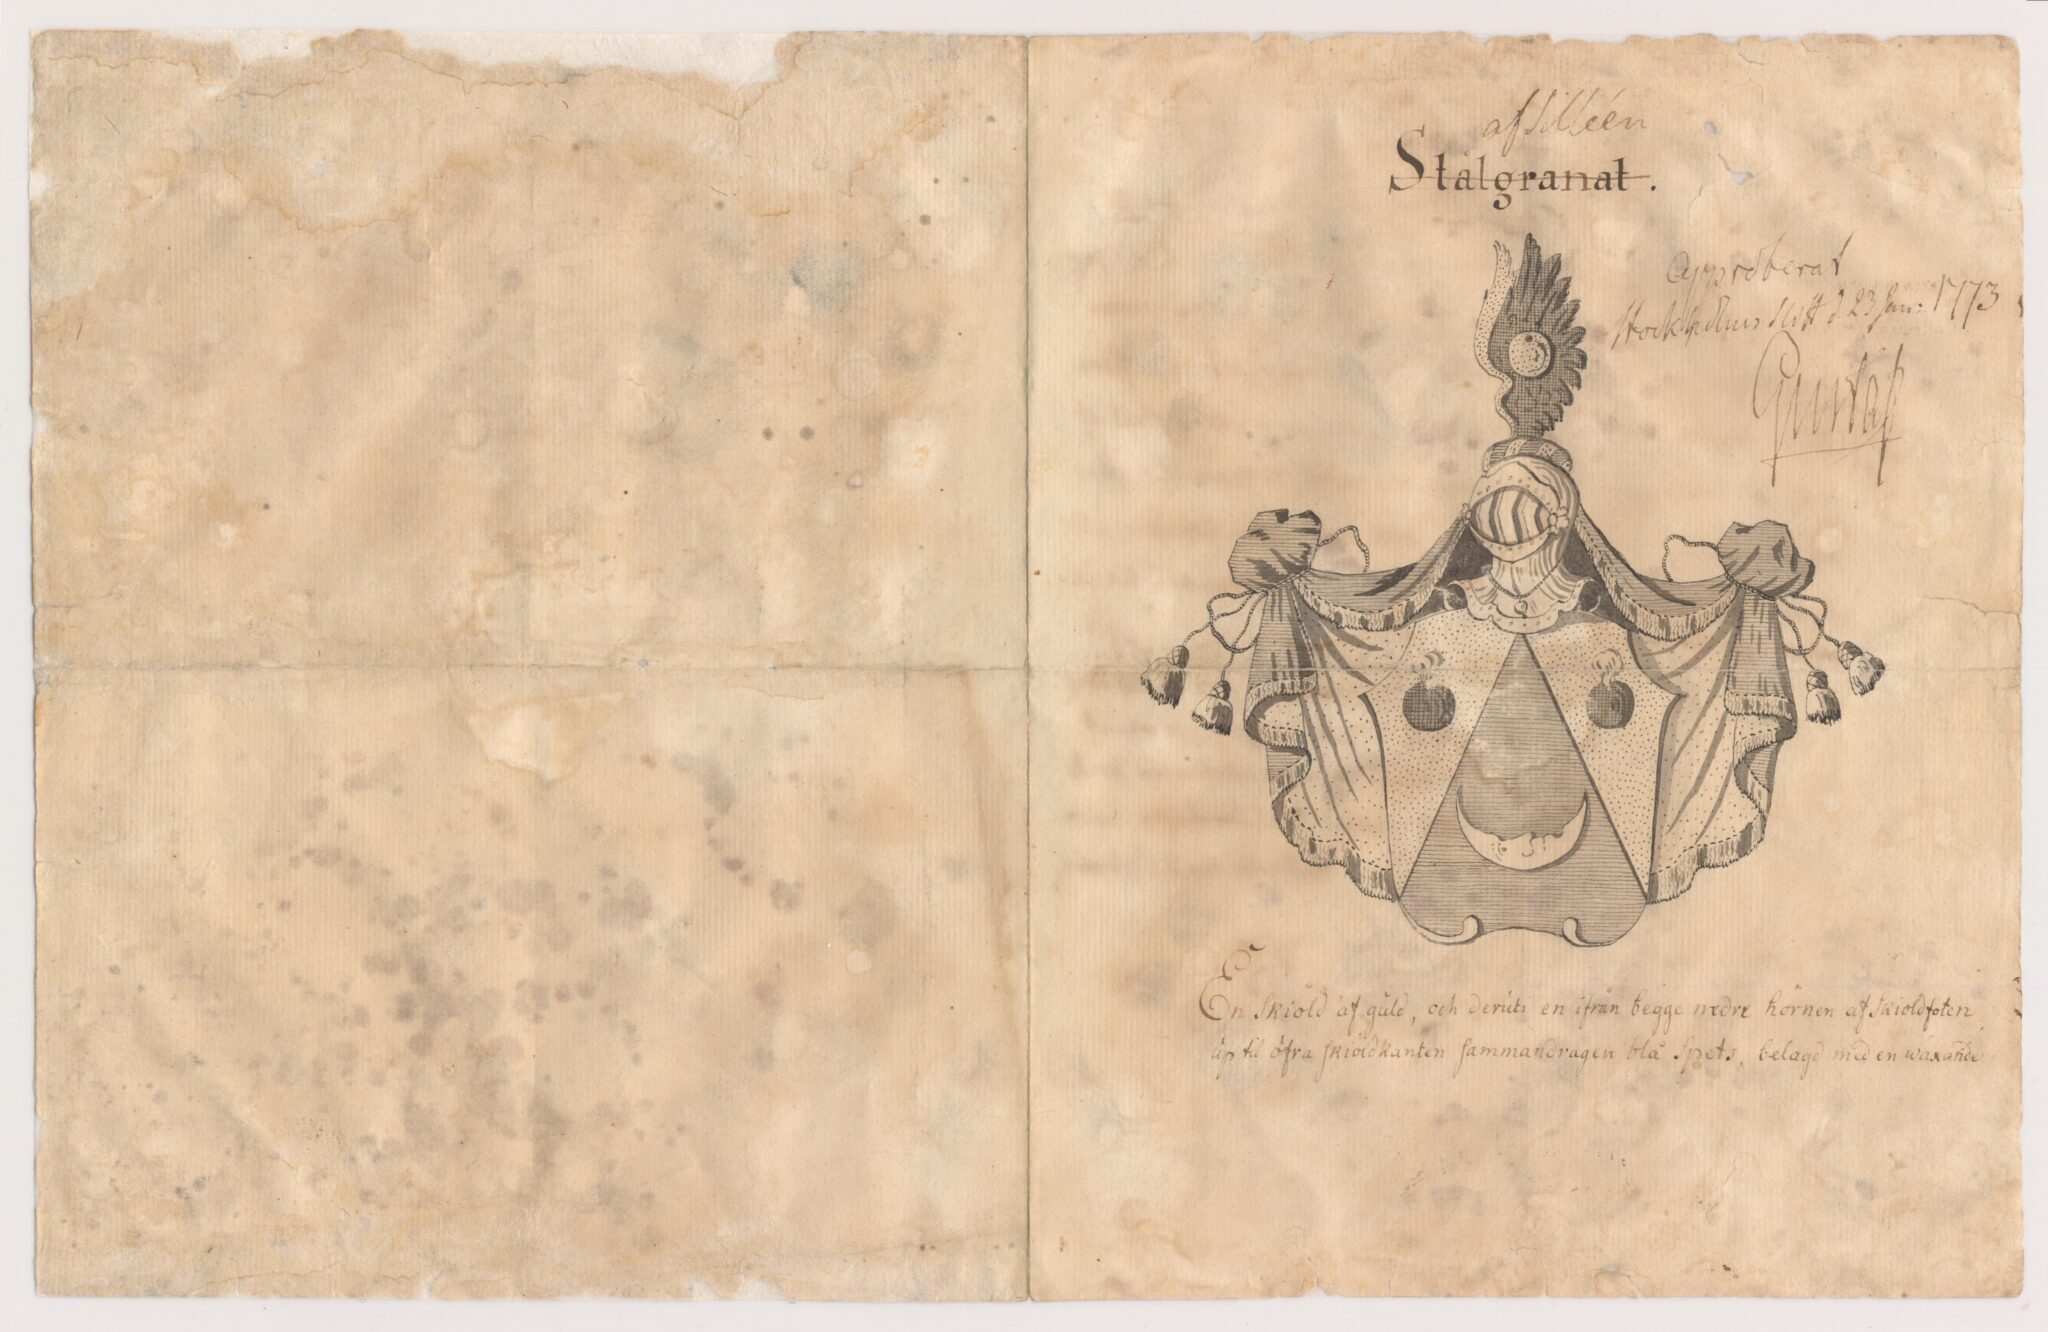 af Silléen
Stålgranat.
Approberat
Stockholms Slott d 23 Janr 1773
Gustaf
En Skiöld af guld, och deruti en ifrån begge nedre hörnen af skiöldfoten
up til öfra skiöldkanten sammandragen blå Spets, belagd med en waxande